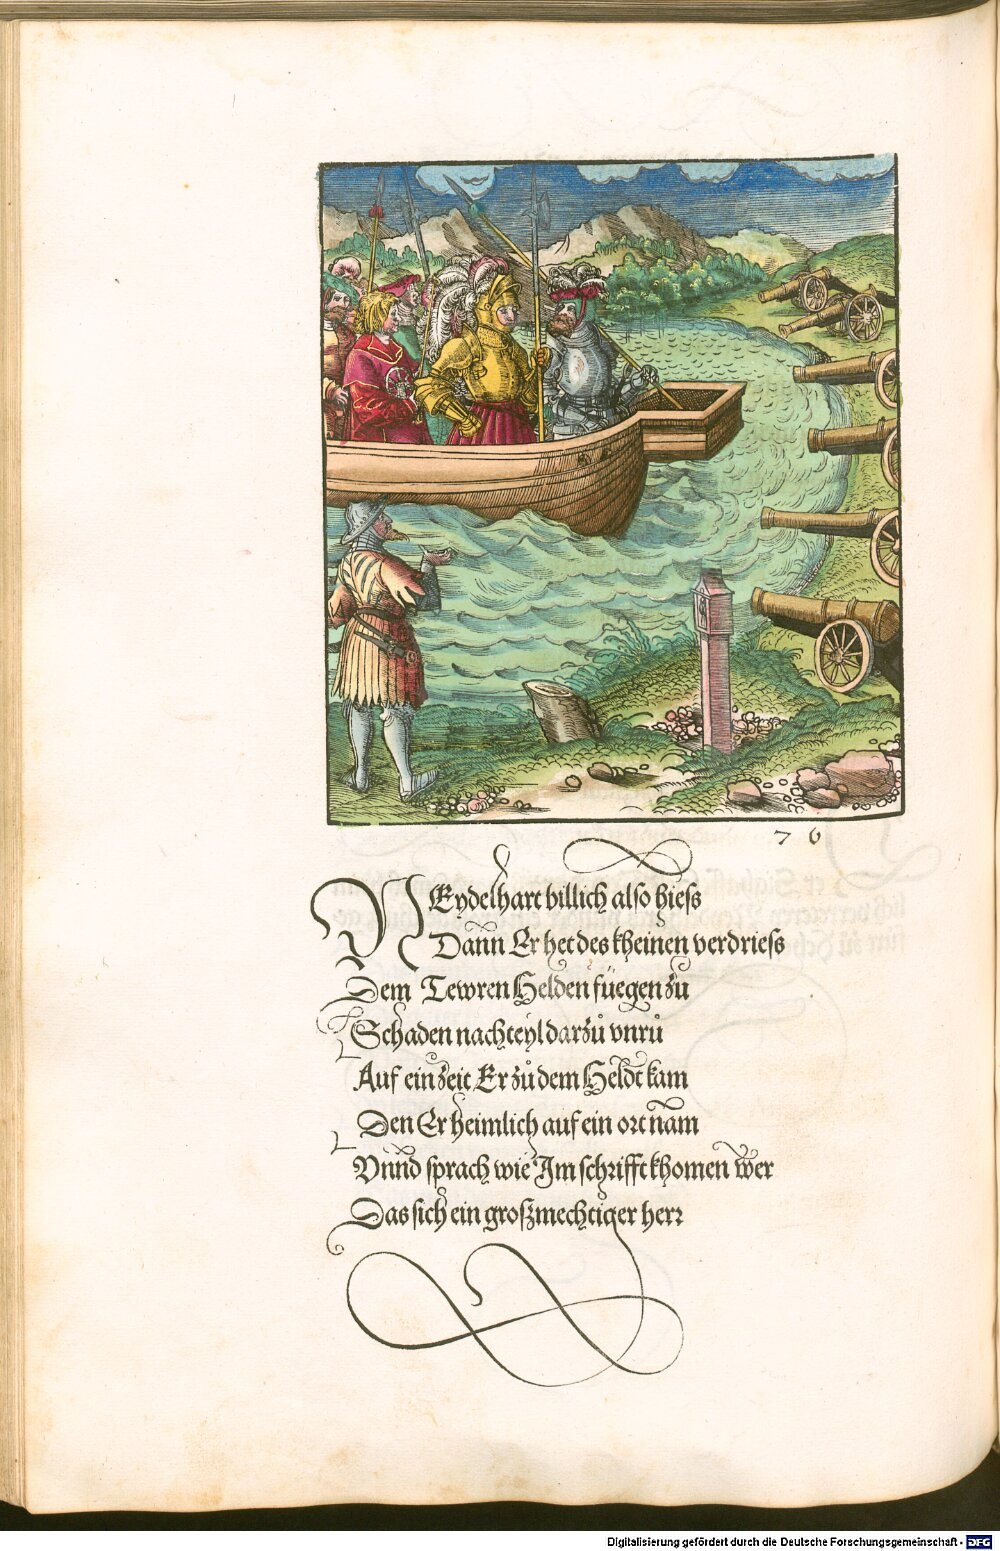 76
NEydelhart billich also hiess
Dann Er het des kheinen verdriess
Dem Tewren Helden füegen zů
Schaden nachteyl darzů vnrů
Auf ein zeit Er zů dem Heldt kam
Den Er heimlich auf ein ort nam
Vnnd sprach wie Im schrifft khomen wer
Das sich ein großmechtiger herr
Digitalisierung gefördert durch die Deutsche Forschungsgemeinschaft - DFG